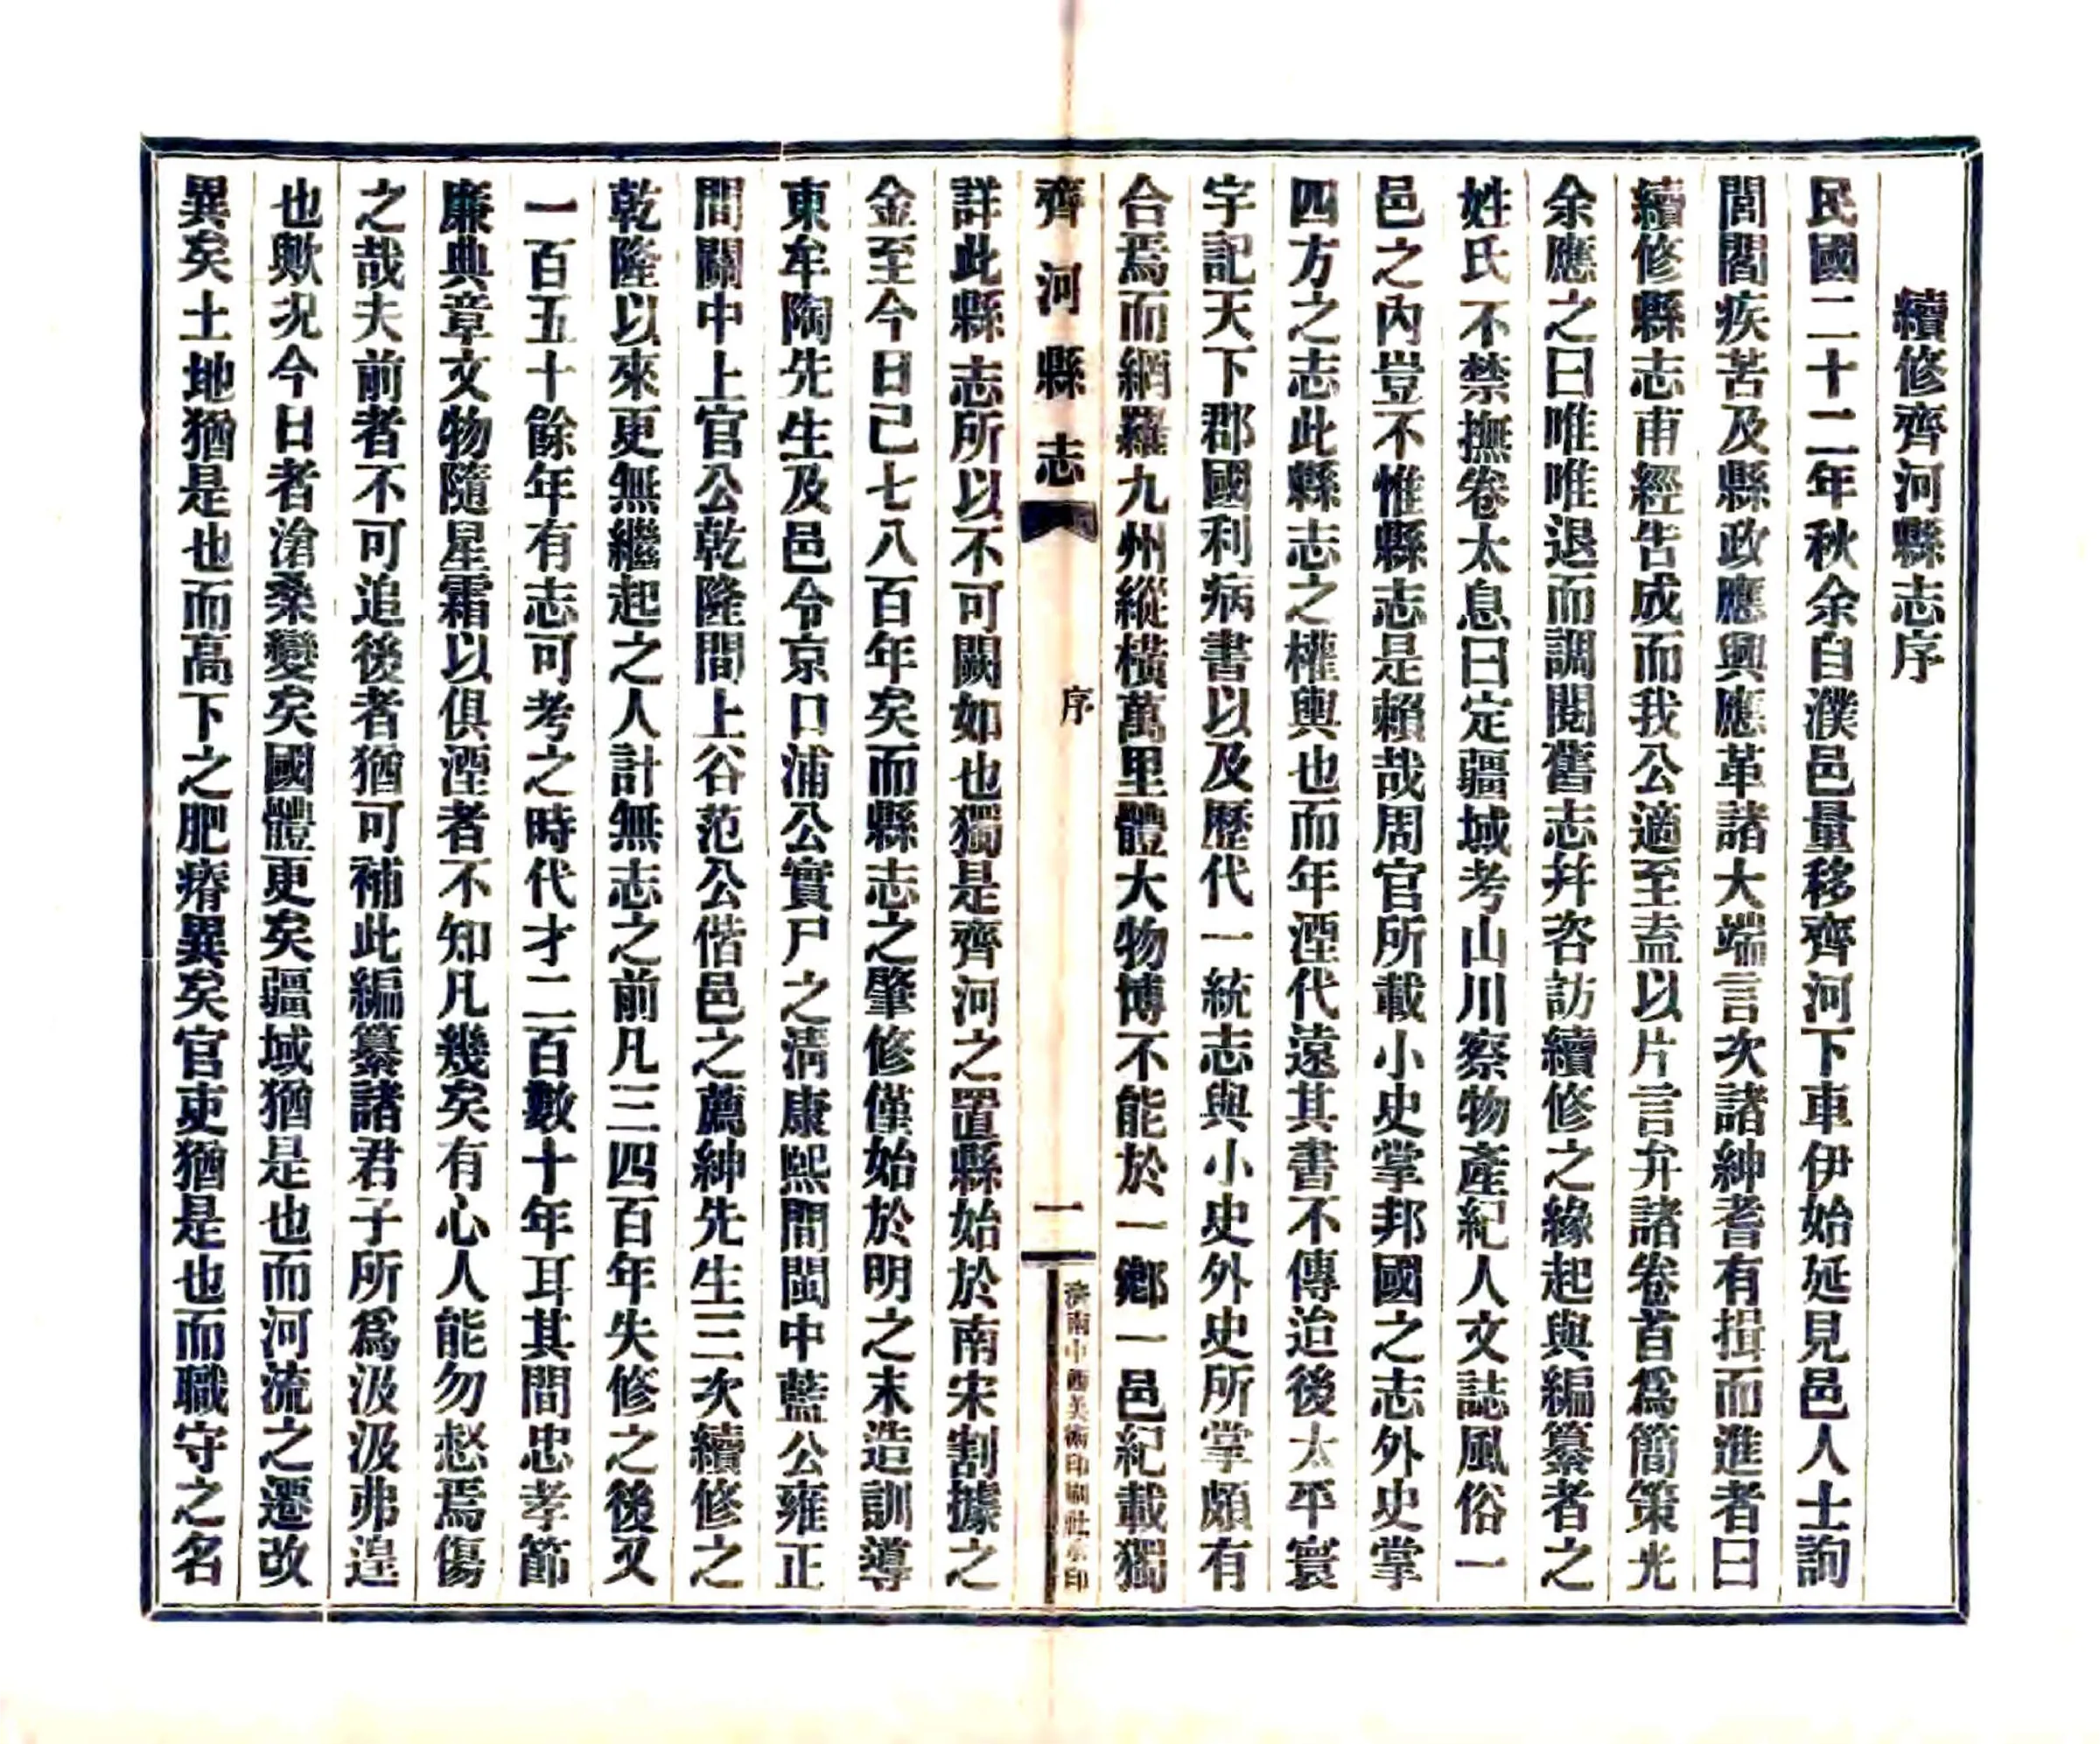 續修齊河縣志序
民國二十二年秋余自濮邑量移齊河下車伊始延見邑人士詢
閭閻疾苦及縣政應興應革諸大端言次諸紳耆有揖而進者曰
續修縣志甫經告成而我公適至盍以片言弁諸卷首爲簡策光
余應之曰唯唯退而調閱舊志幷咨訪續修之緣起與編纂者之
姓氏不禁撫卷太息曰定疆域考山川察物產紀人文誌風俗一
邑之內豈不惟縣志是賴哉周官所載小史掌邦國之志外史掌
四方之志此縣志之權輿也而年湮代遠其書不傳迨後太平寰
宇記天下郡國利病書以及歷代一統志與小史外史所掌頗有
合焉而網羅九州縱橫萬里體大物博不能於一鄉一邑紀載獨
齊河縣志
序
一
濟南中西美術印刷社承印
詳此縣志所以不可闕如也獨是齊河之置縣始於南宋割據之
金至今日已七八百年矣而縣志之肇修僅始於明之末造訓導
東牟陶先生及邑令京口浦公實尸之淸康熙間閩中藍公雍正
間關中上官公乾隆間上谷范公偕邑之薦紳先生三次續修之
乾隆以來更無繼起之人計無志之前凡三四百年失修之後又
一百五十餘年有志可考之時代才二百數十年耳其間忠孝節
廉典章文物隨星霜以俱湮者不知凡幾矣有心人能勿愁焉傷
之哉夫前者不可追後者猶可補此編纂諸君子所爲汲汲弗遑
也歟况今日者滄桑變矣國體更矣疆域猶是也而河流之遷改
異矣土地猶是也而高下之肥瘠異矣官吏猶是也而職守之名